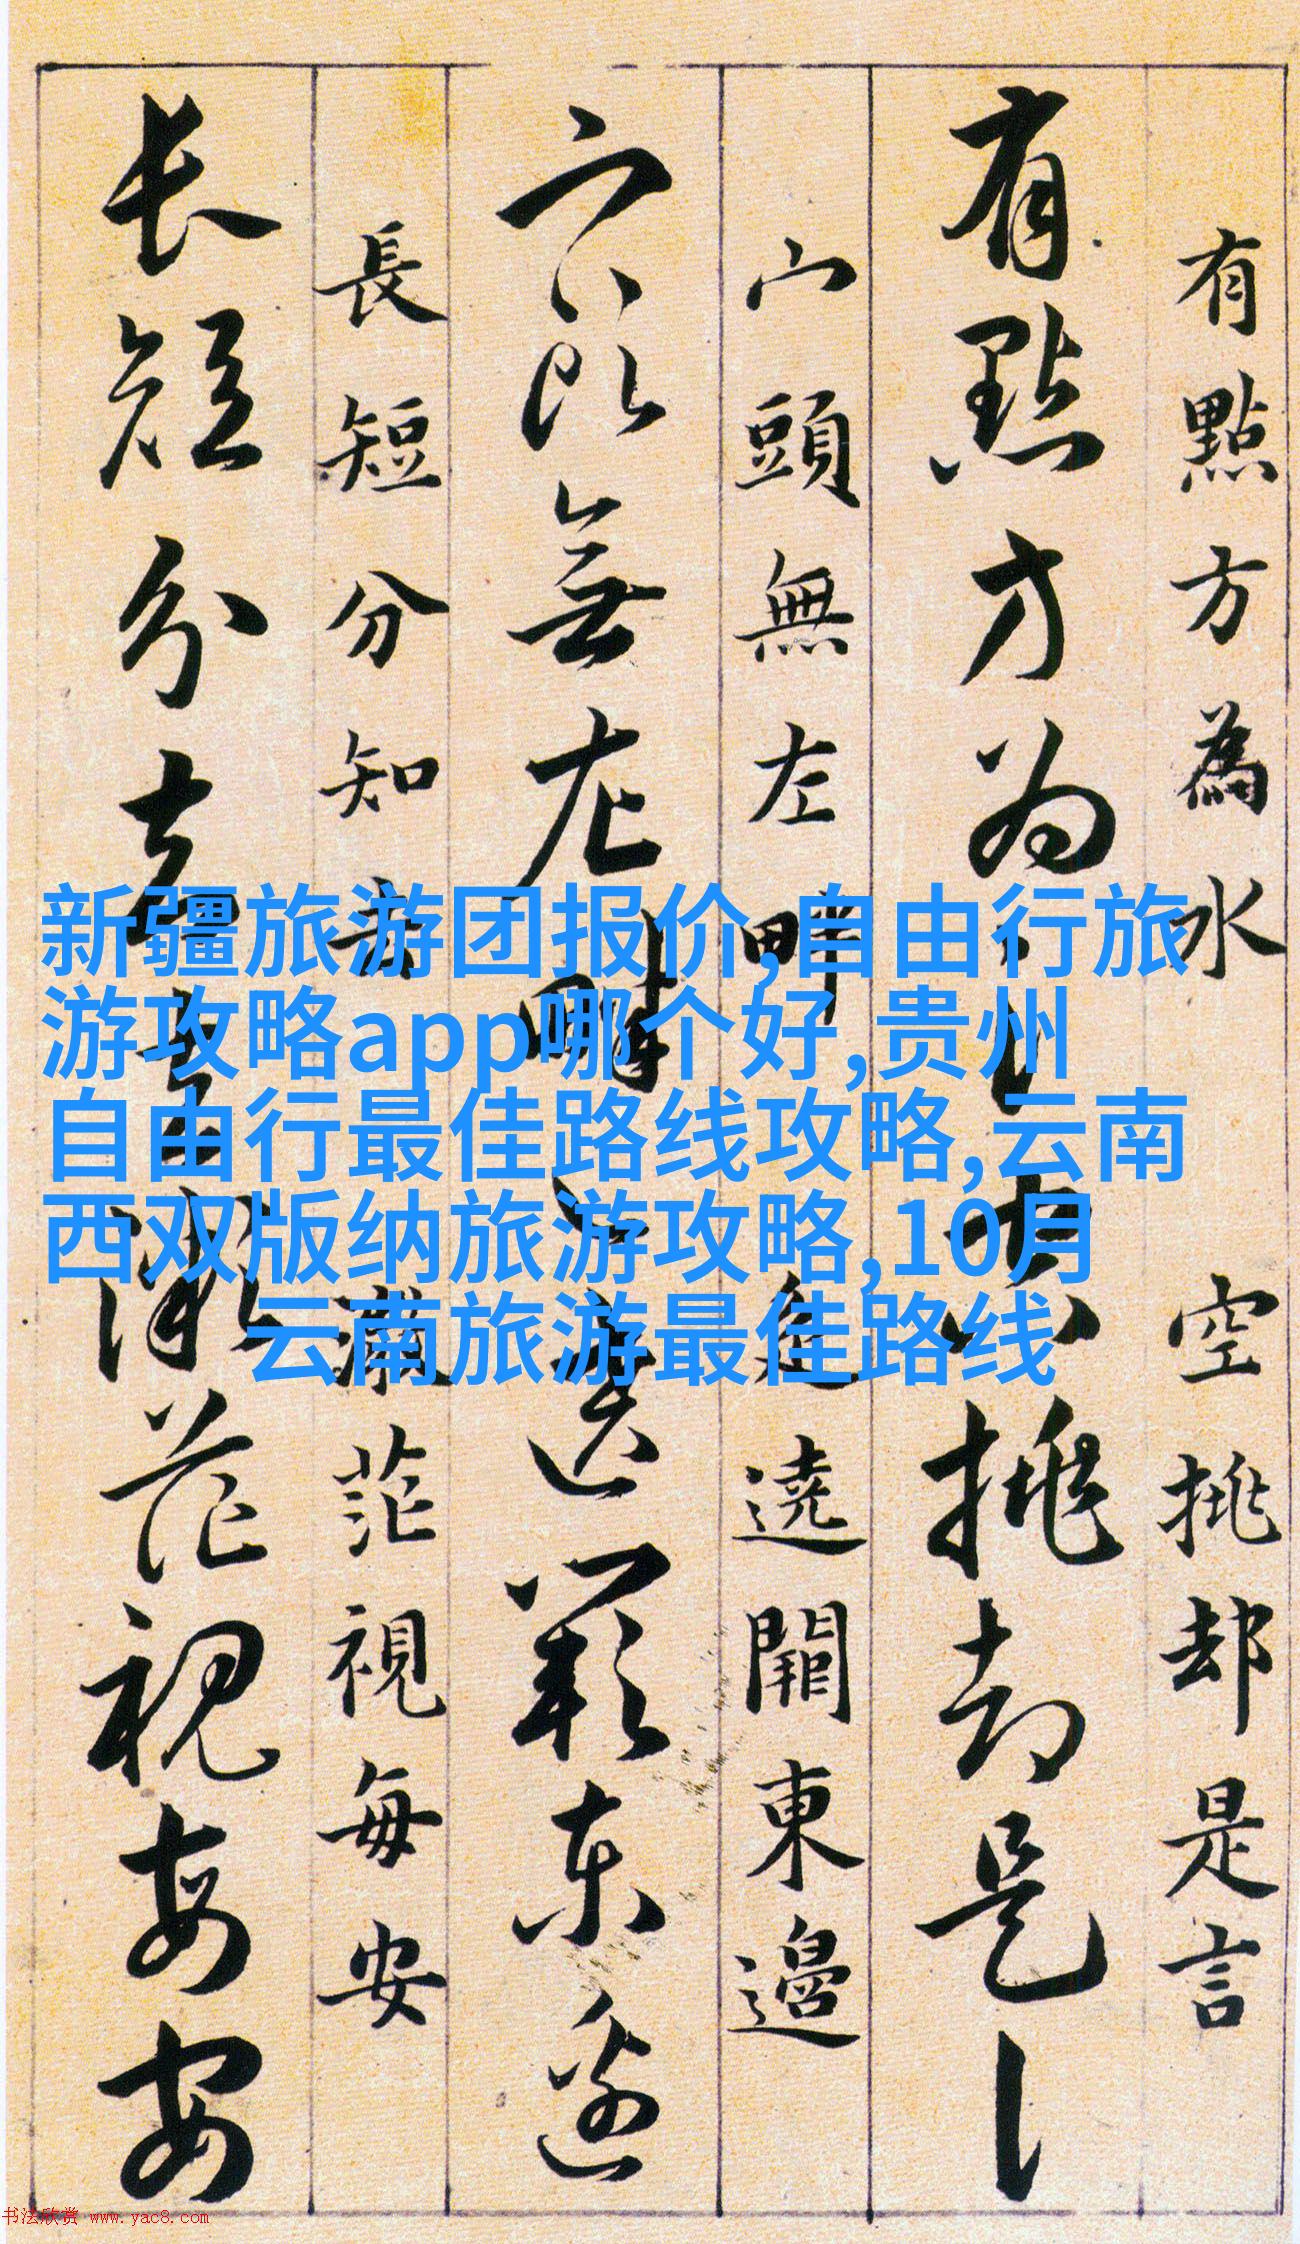 有點方為水 空挑却是言
有點方为水 空挑却是言
宀頭無左畔 辵遶闕東邊
宀頭無左畔 辵遶闕东邊
長短分知去 微茫視每安
长短分知去 微茫視每安
新疆旅游团报价,自由行旅
游攻略app哪个好,贵州
自由行最佳路线攻略,云南
西双版纳旅游攻略,10月
云南旅游最佳路线
书法欣赏 www.yac8.com